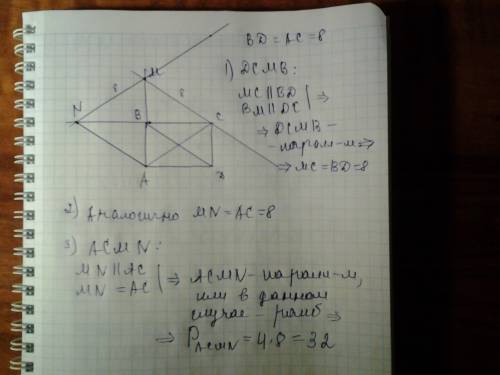 BD = AC = 8
1) DCMB:
MC || BD
BM || DC | ⇒
⇒ DCMB -
- парал-м ⇒
⇒ MC = BD = 8
M
8
8
N
B
C
A
D
2) Аналогично MN = AC = 8
3) ACMN:
MN || AC
MN = AC | ⇒ ACMN - парал-м,
или в данном
случае - ромб ⇒
⇒ P ACMN = 4·8 = 32